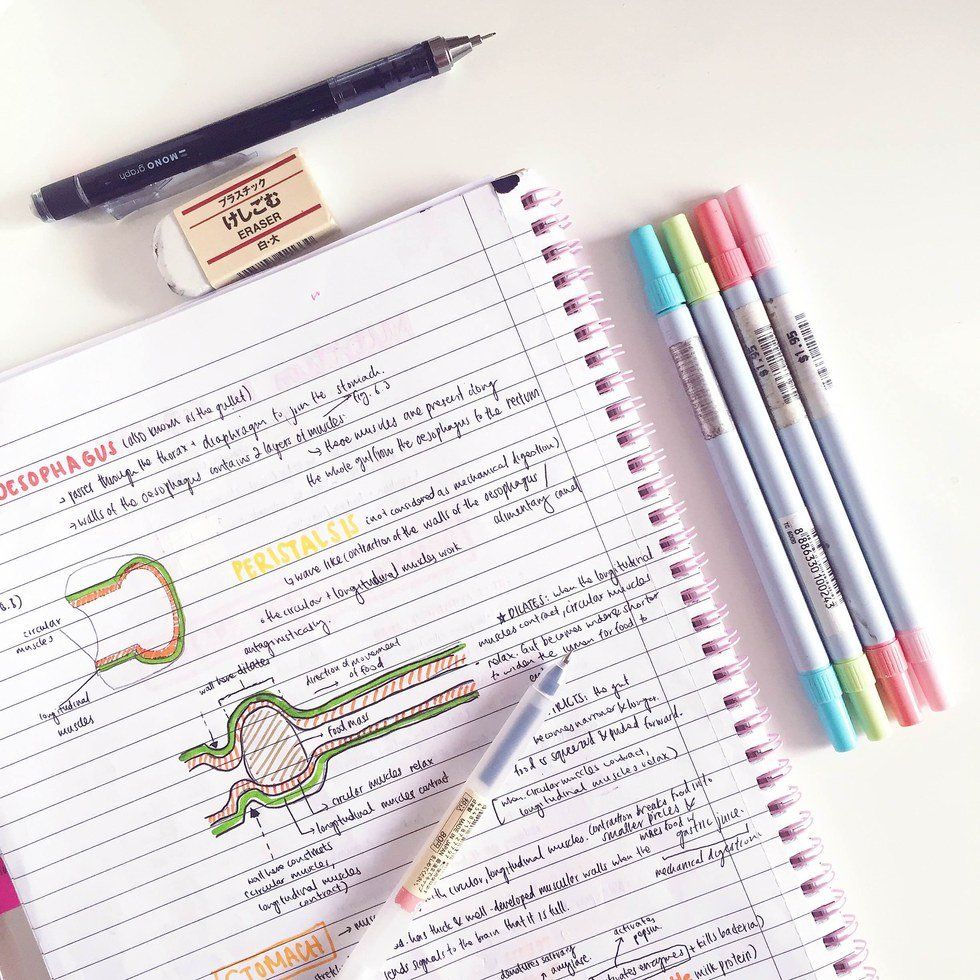 MONO graph
プラスチック
けしごむ
ERASER
白・大
$1.95
$1.95
8 886330 100243
OESOPHAGUS (also known as the gullet)
→ passes through the thorax + diaphragm to join the stomach.
→ walls of the oesophagus contains 2 layers of muscles (fig. 6.
→ these muscles are present along
the whole gut from the oesophagus to the rectum
PERISTALSIS (not considered as mechanical digestion)
↳ wave like contraction of the walls of the oesophagus /
alimentary canal
• the circular + longitudinal muscles work
antagonistically.
circular
muscles
longitudinal
muscles
wall here dilates
direction of movement
of food
food mass
→ circular muscles relax
→ longitudinal muscles contract
wall here constricts
(circular muscles,
longitudinal muscles
contract)
★ DILATES: when the longitudinal
muscles contract, circular muscles
relax. Gut becomes wider & shorter
to widen the lumen for food to
RICTS: the gut
becomes narrower & longer.
food is squeezed & pushed forward.
(when circular muscles contract,
longitudinal muscles relax)
with circular, longitudinal muscles. contraction breaks food into
smaller pieces &
mixes food w
gastric juice.
mechanical digestion
has thick & well-developed muscular walls when the
sends signals to the brain that it is full.
STOMACH
→ mus
denatures salivary
amylase.
activates
pepsin
enzymes + kills bacteria)
milk protein)